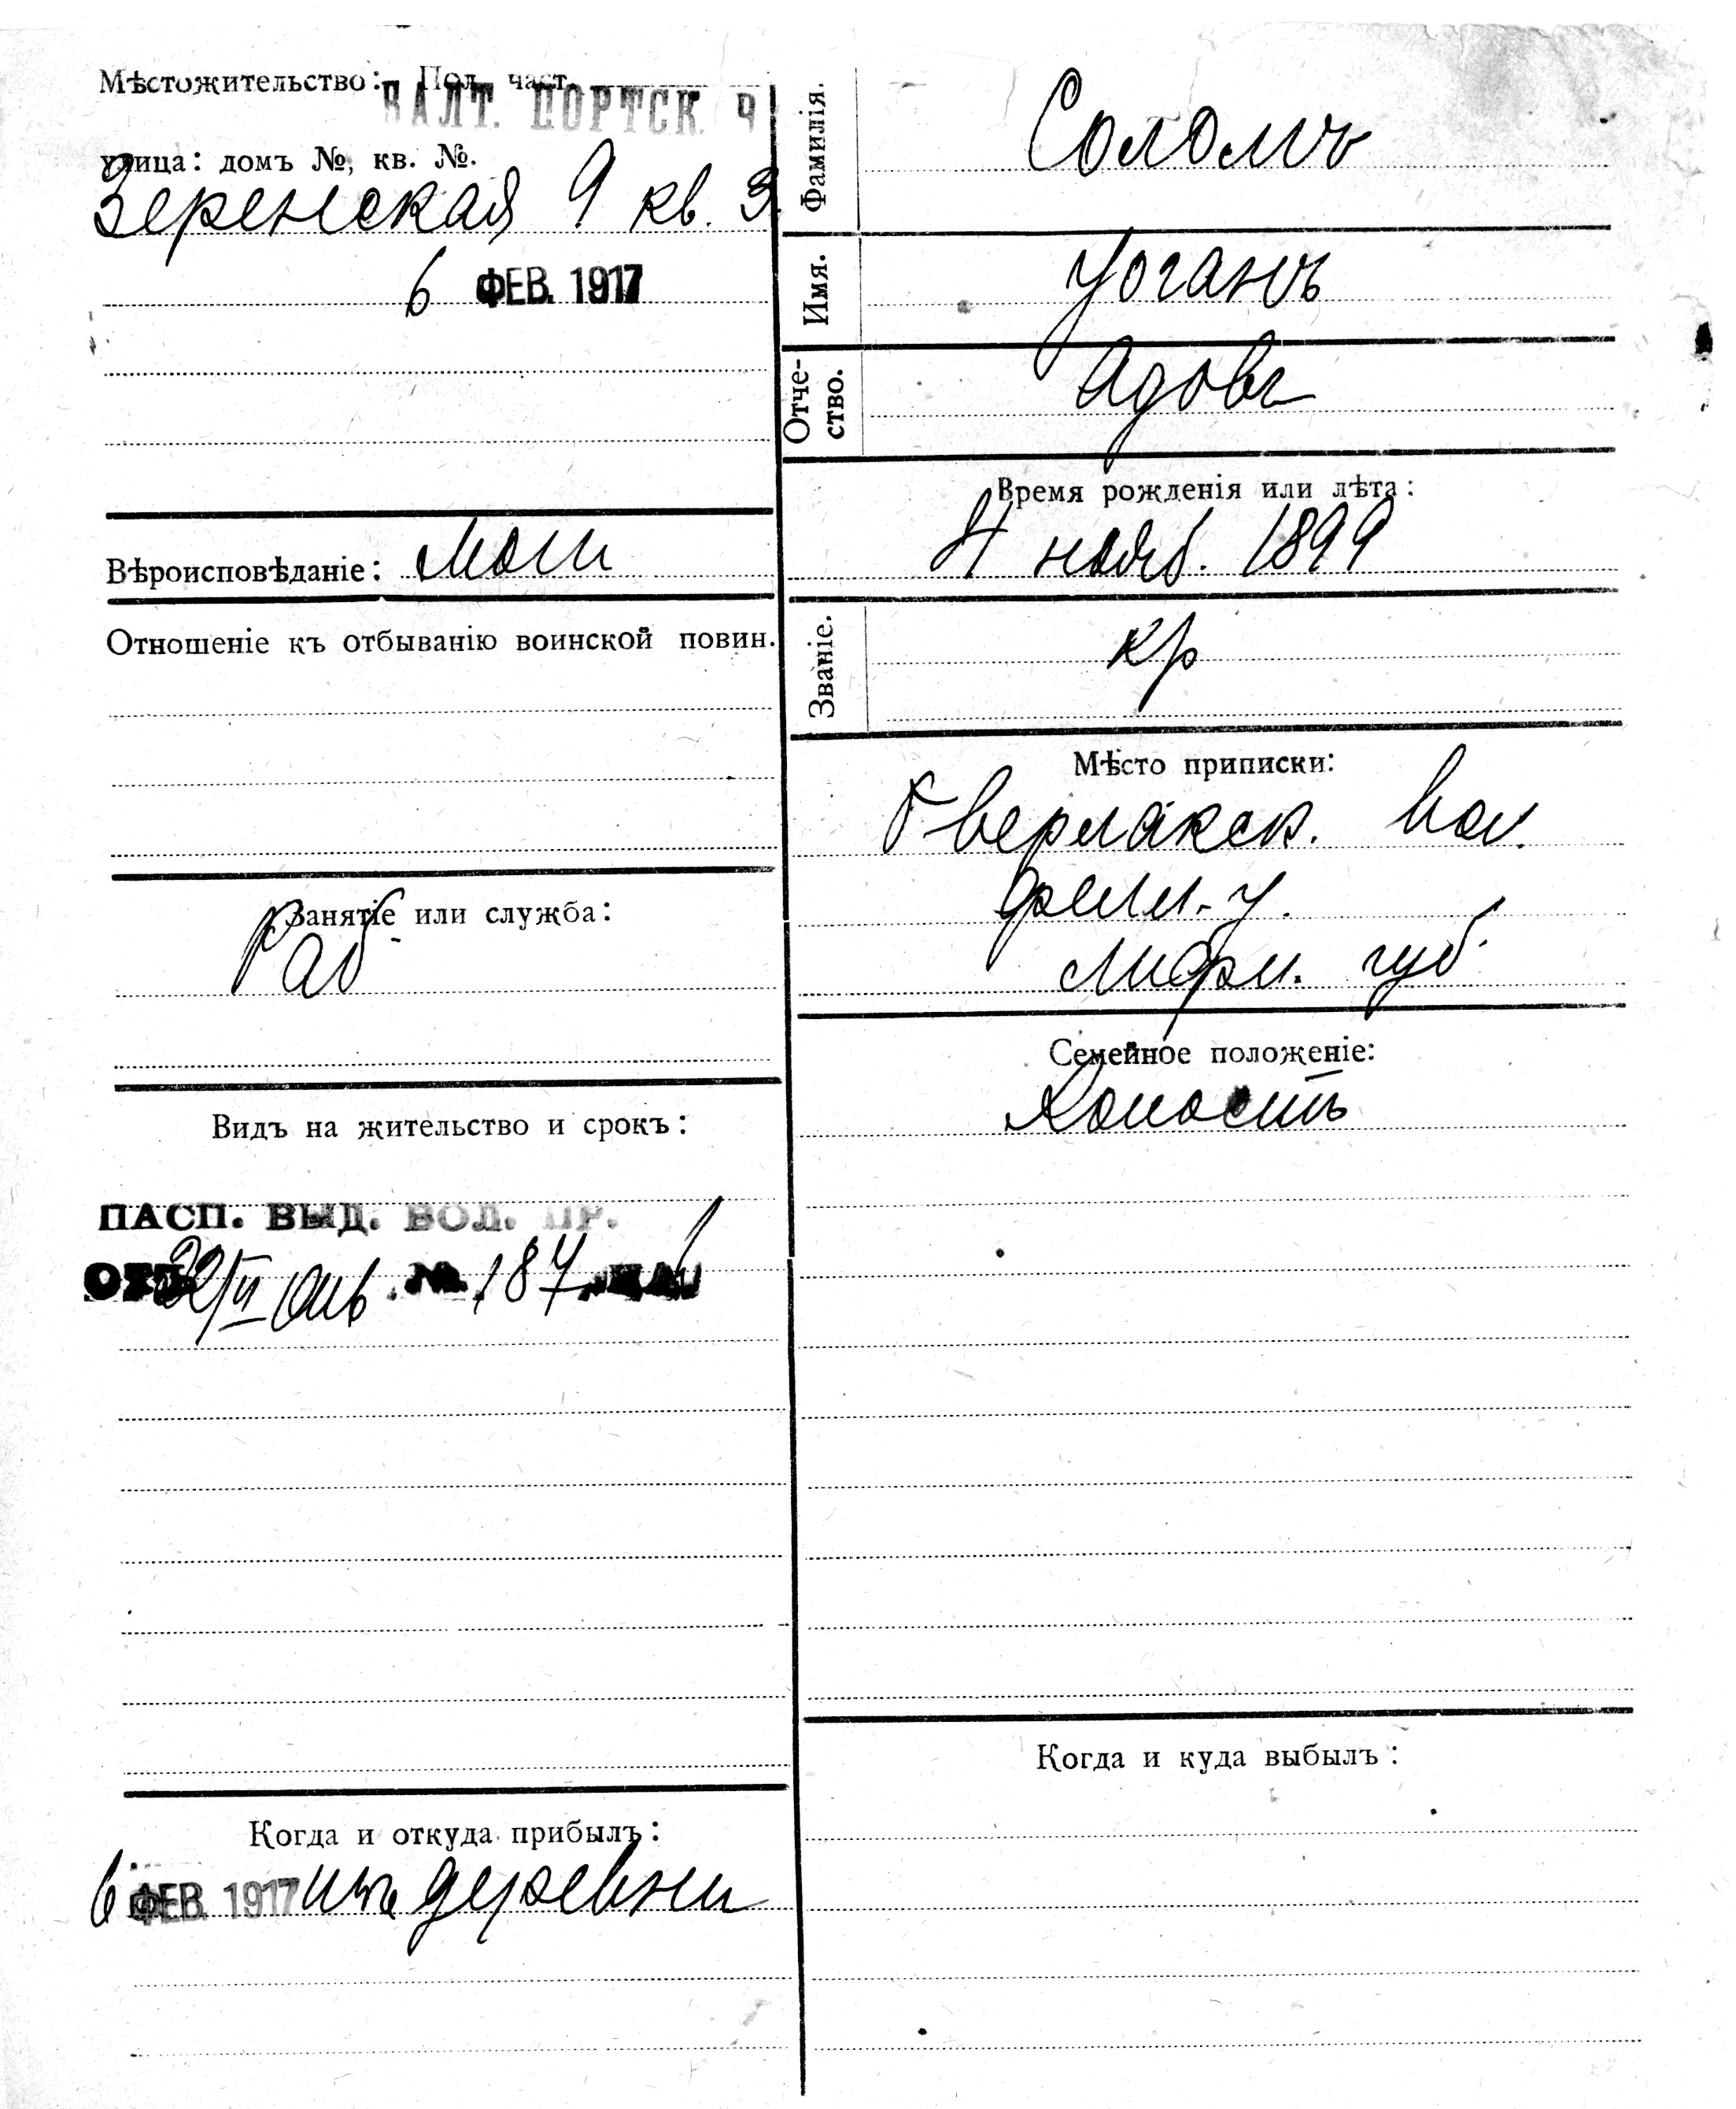 Мѣстожительство: Пол. част.
БАЛТ. ПОРТСК. Ч
улица: домъ №, кв. №.
Зеренская 9 кв. 3.
6 ФЕВ. 1917
Вѣроисповѣданіе: Лют
Отношеніе къ отбыванію воинской повин.
Занятіе или служба:
Раб
Видъ на жительство и срокъ:
ПАСП. ВЫД. ВОЛ. ПР.
ОТЪ янв. № 187
Когда и откуда прибылъ:
6 ФЕВ. 1917 изъ деревни
Фамилія. Соломъ
Имя. Іоганъ
Отче-
ство. Адовъ
Время рожденія или лѣта:
4 нояб. 1899
Званіе. кр
Мѣсто приписки:
Оверлакск. вол.
Фелл. у.
Лифл. губ.
Семейное положеніе:
Холостъ
Когда и куда выбылъ: